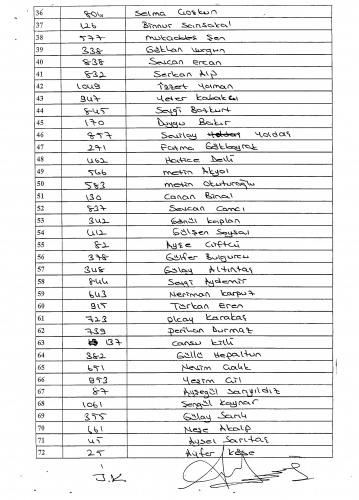 36 804 Selma Coşkun
37 126 Binnur Sarısakal
38 577 Mukaddes Şen
39 338 Gökhan
40 838 Sevcan Ercan
41 832 Serkan Alp
42 1049 İzzet Yalman
43 947 Yeter Kabakcı
44 845 Sevgi Bozkurt
45 170 Duygu Bakır
46 857 Sevilay Yoldaş
47 271 Fatma Gökbayrak
48 462 Hatice Delli
49 566 Metin Akyol
50 583 Metin Okuturoğlu
51 130 Canan Binal
52 827 Sevcan Cancı
53 342 Gönül Kaplan
54 412 Gülşen Soysal
55 82 Ayşe Çiftçi
56 378 Gülfer Bulgurcu
57 348 Gülay Altıntaş
58 844 Sevgi Aydemir
59 643 Neriman Karpuz
60 915 Türkan Eren
61 723 Olcay Karakaş
62 739 Perihan Durmaz
63 137 Cansu Killi
64 382 Güllü Hepaltun
65 651 Nesim Çalık
66 953 Yeşim Çil
67 87 Ayşegül Sarıyıldız
68 1061 Şengül Kaynar
69 355 Gülay Sarılı
70 661 Neşe Akalp
71 45 Aysel Sarıtaş
72 25 Ayfer Köse
J.K